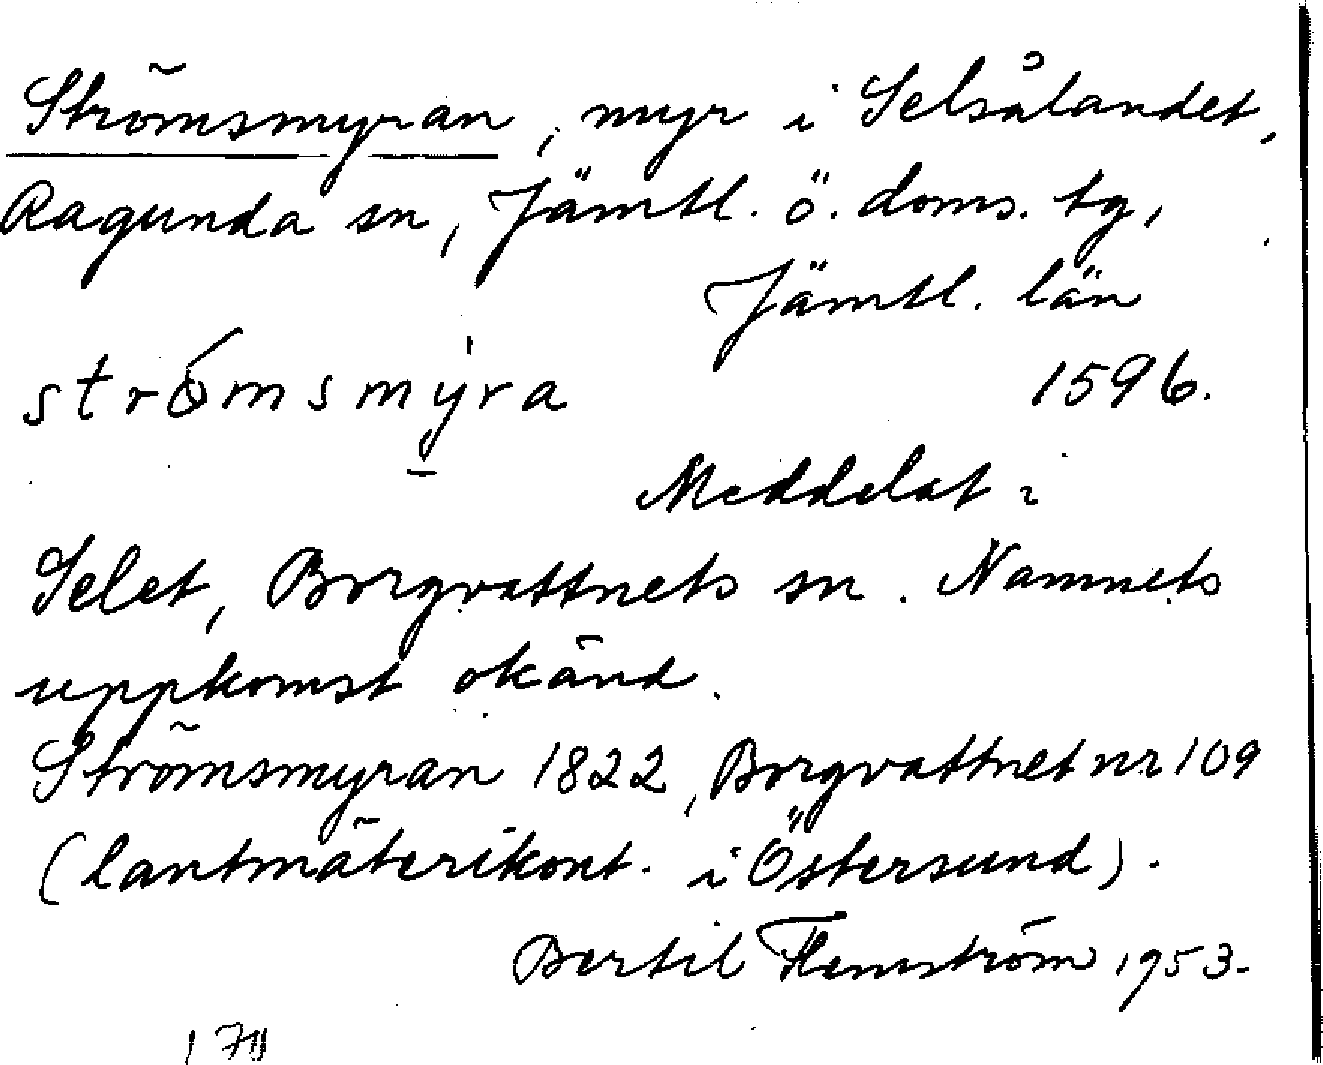 Strömsmyran, myr i Selsålandet,
Ragunda sn, Jämtl. ö. doms. tg,
Jämtl. län
strömsmyra 1596.
Meddelat i
Selet, Borgvattnets sn. Namnets
uppkomst okänd.
Strömsmyran 1822, Borgvattnet nr 109
(lantmäterikont. i Östersund).
Bertil Flemström 1953.